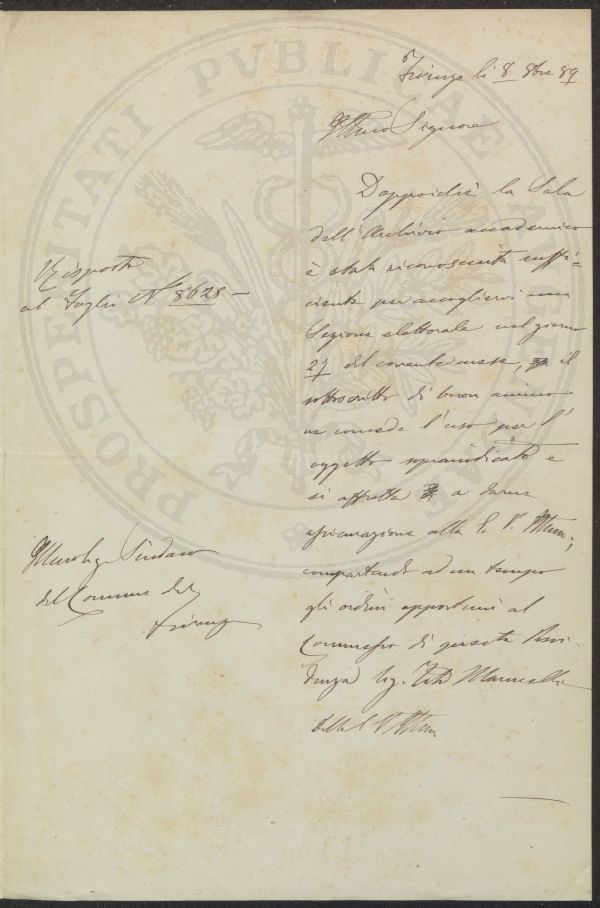 Firenze li 8 8bre 89
Illmo Signore
Dappoichè la Sala
dell'Archivio accademico
è stata riconosciuta suffi-
ciente per accogliervi una
Sezione elettorale nel giorno
27 del corrente mese, il
sottoscritto di buon animo
ne concede l'uso per l'
oggetto sopraindicato e
si affretta a darne
assicurazione alla S. V. Illma;
compartendo ad un tempo
gli ordini opportuni al
Commesso di questa Resi-
denza Sig. Tito
Della S V Illma
Risposta
al Foglio N° 8628 -
Sindaco
del Comune di
Firenze
PROSPERITATI PVBLICAE